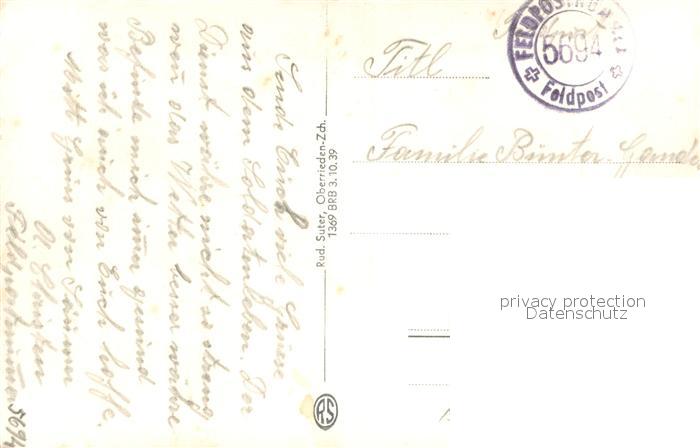 Sende Euch viele Grüsse
aus dem Soldatenleben. Der
Dienst währe nicht so streng
wen das Wetter besser währe
Befinde mich imer gesund
was ich auch von Euch hoffe.
Mitt Gruss von
A. Christen
Feldpostnummer 5694
Rud. Suter, Oberrieden-Zch.
1369 BRB 3.10.39
RS
FELDPOST
5694
Feldpost
Titl
Familie Bünter
privacy protection
Datenschutz